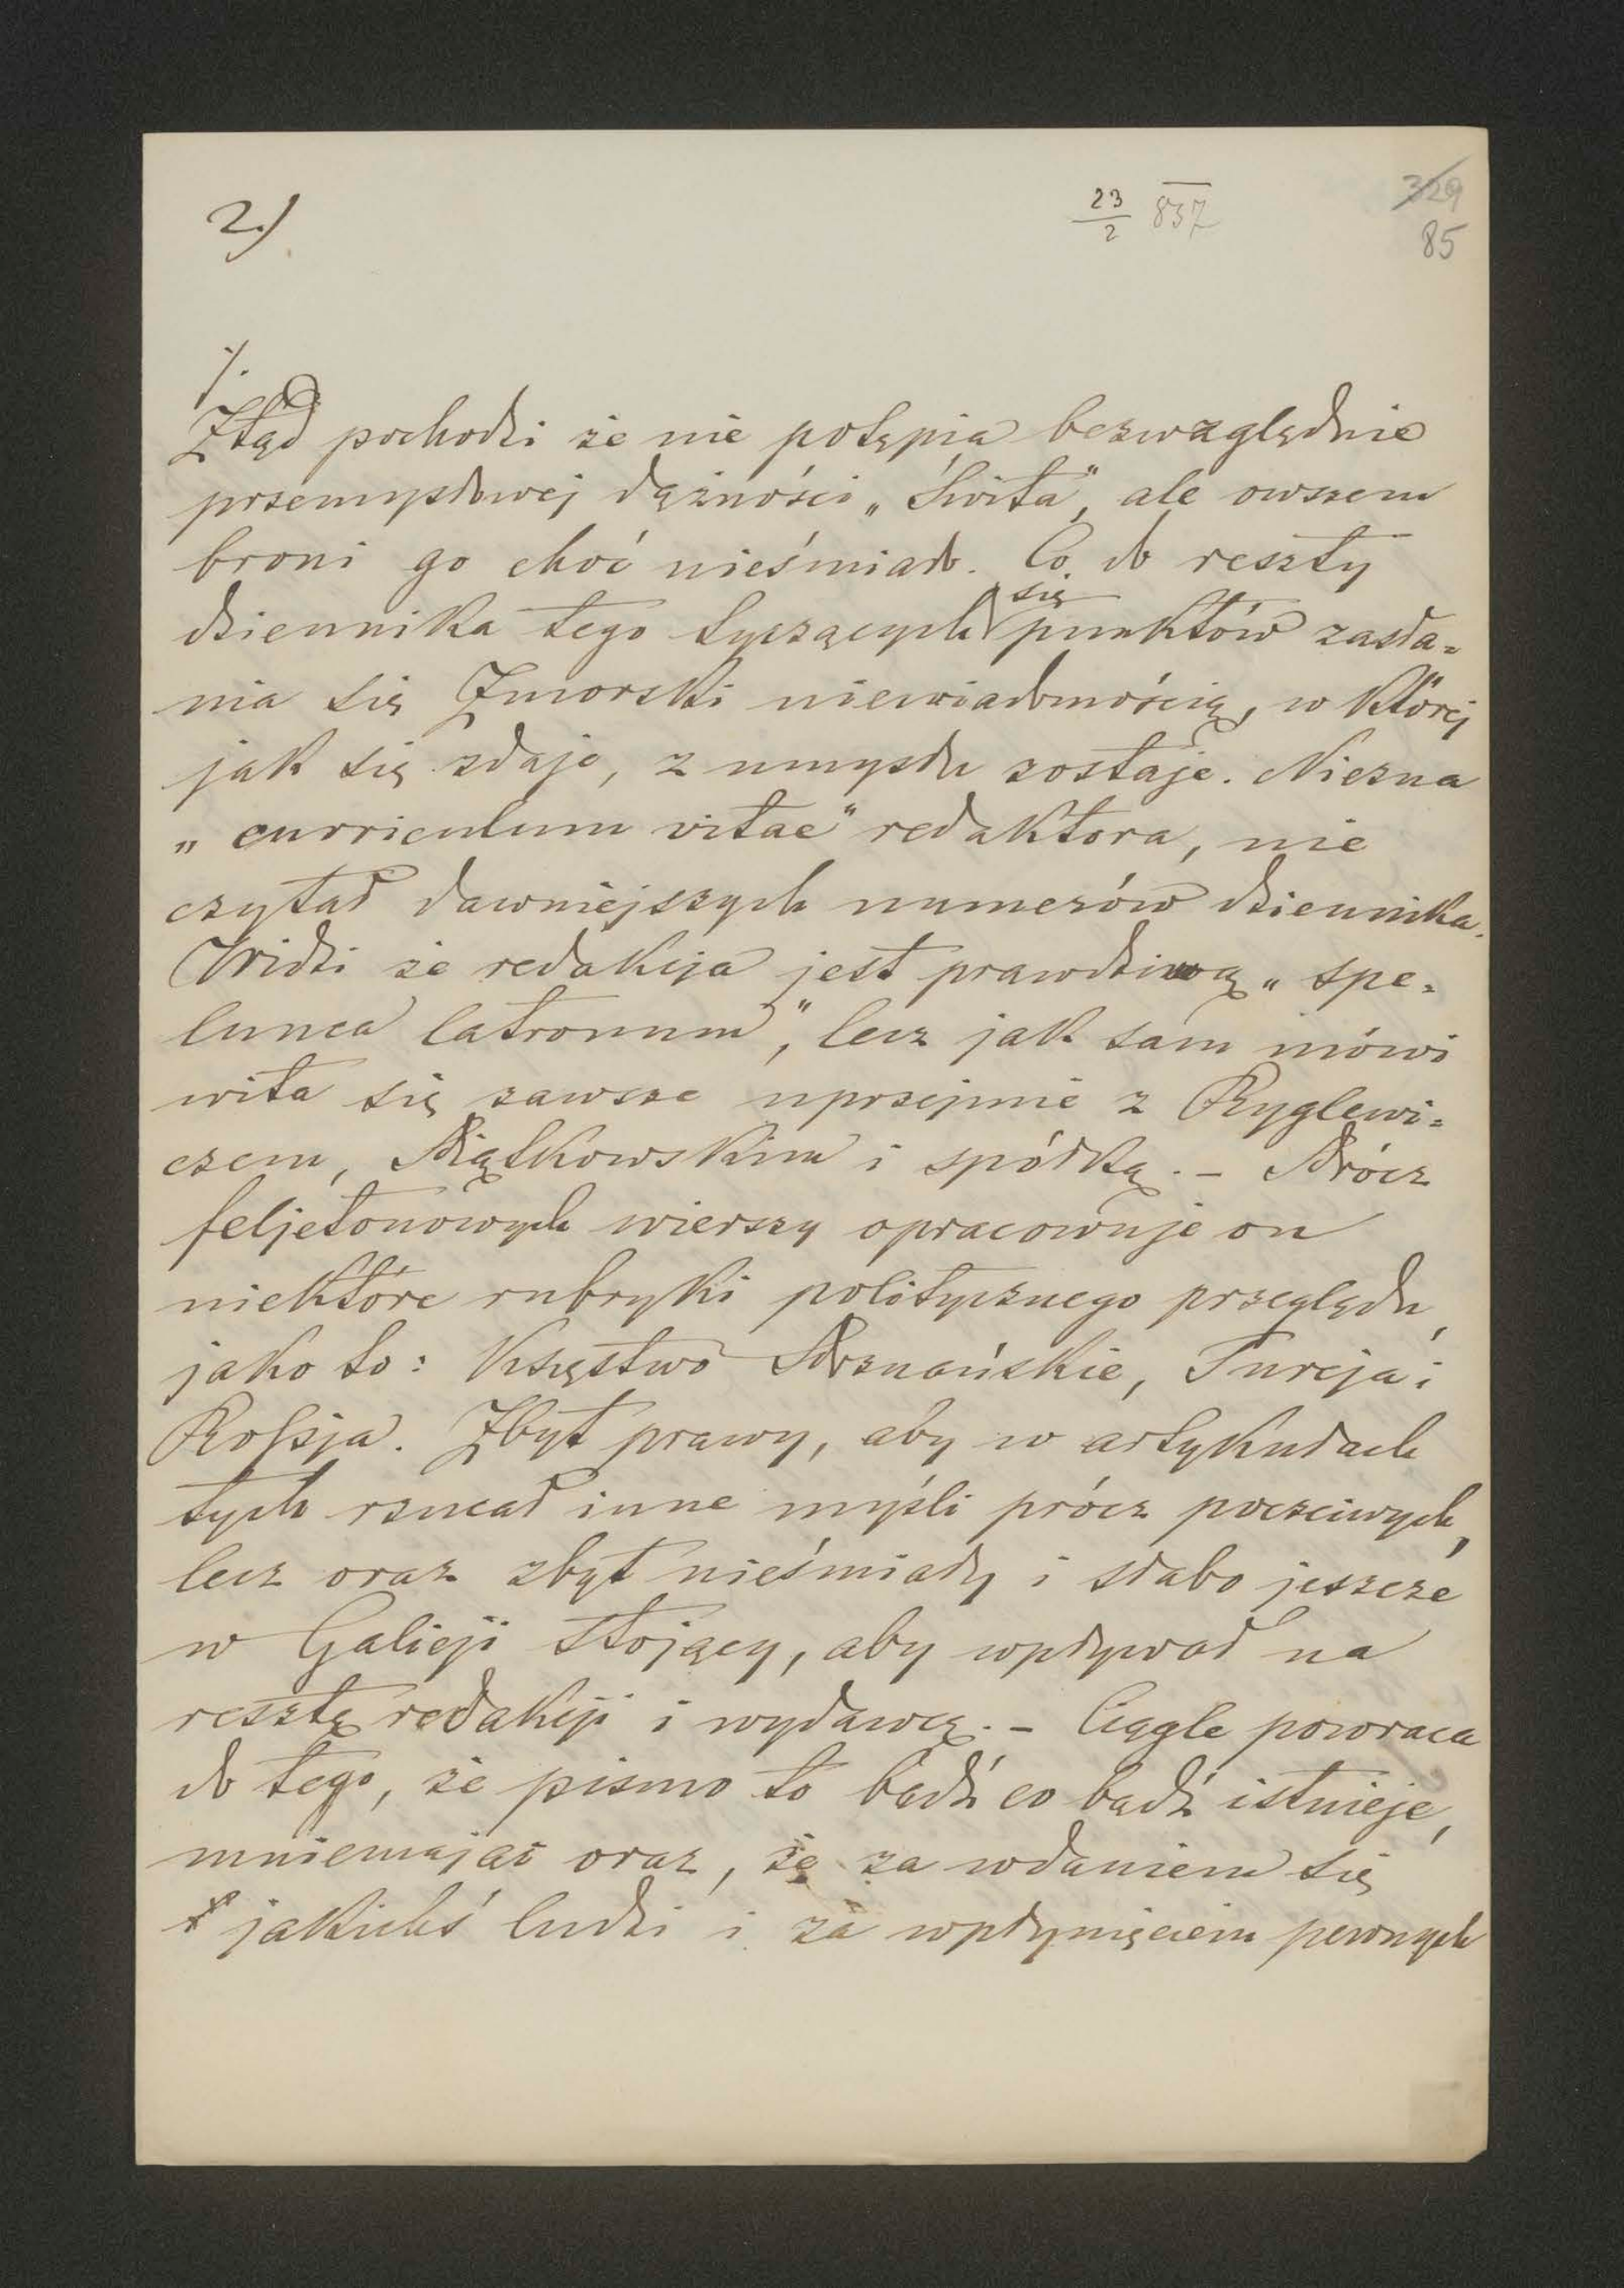 2.)
23/2 837
329
85
/.
Ztąd pochodzi że nie potępia bezwzględnie
przemysłowej dążności „Świta", ale owszem
broni go choć nieśmiało. Co do reszty
dziennika tego tyczących się punktów zasła=
nia się Zmorski niewiadomością, w której
jak się zdaje, z umysłu zostaje. Niezna
„curriculum vitae" redaktora, nie
czytał dawniejszych numerów dziennika.
Widzi że redakcja jest prawdziwą „spe=
lunca latronum", lecz jak sam mówi
wita się zawsze uprzejmie z Ryglewi=
czem, Piątkowskim i spółką. – Prócz
feljetonowych wierszy opracowuje on
niektóre rubryki politycznego przeglądu,
jako to: Księstwo Poznańskie, Turcja i
Rossja. Zbyt prawy, aby w artykułach
tych rzucał inne myśli prócz poczciwych,
lecz oraz zbyt nieśmiały i słabo jeszcze
w Galicji stojący, aby wpływał na
resztę redakcji i wydawcę. – Ciągle powraca
do tego, że pismo to bądź co bądź istnieje,
mniemając oraz, że za wdaniem się
jakichś ludzi i za wpłynięciem pewnych